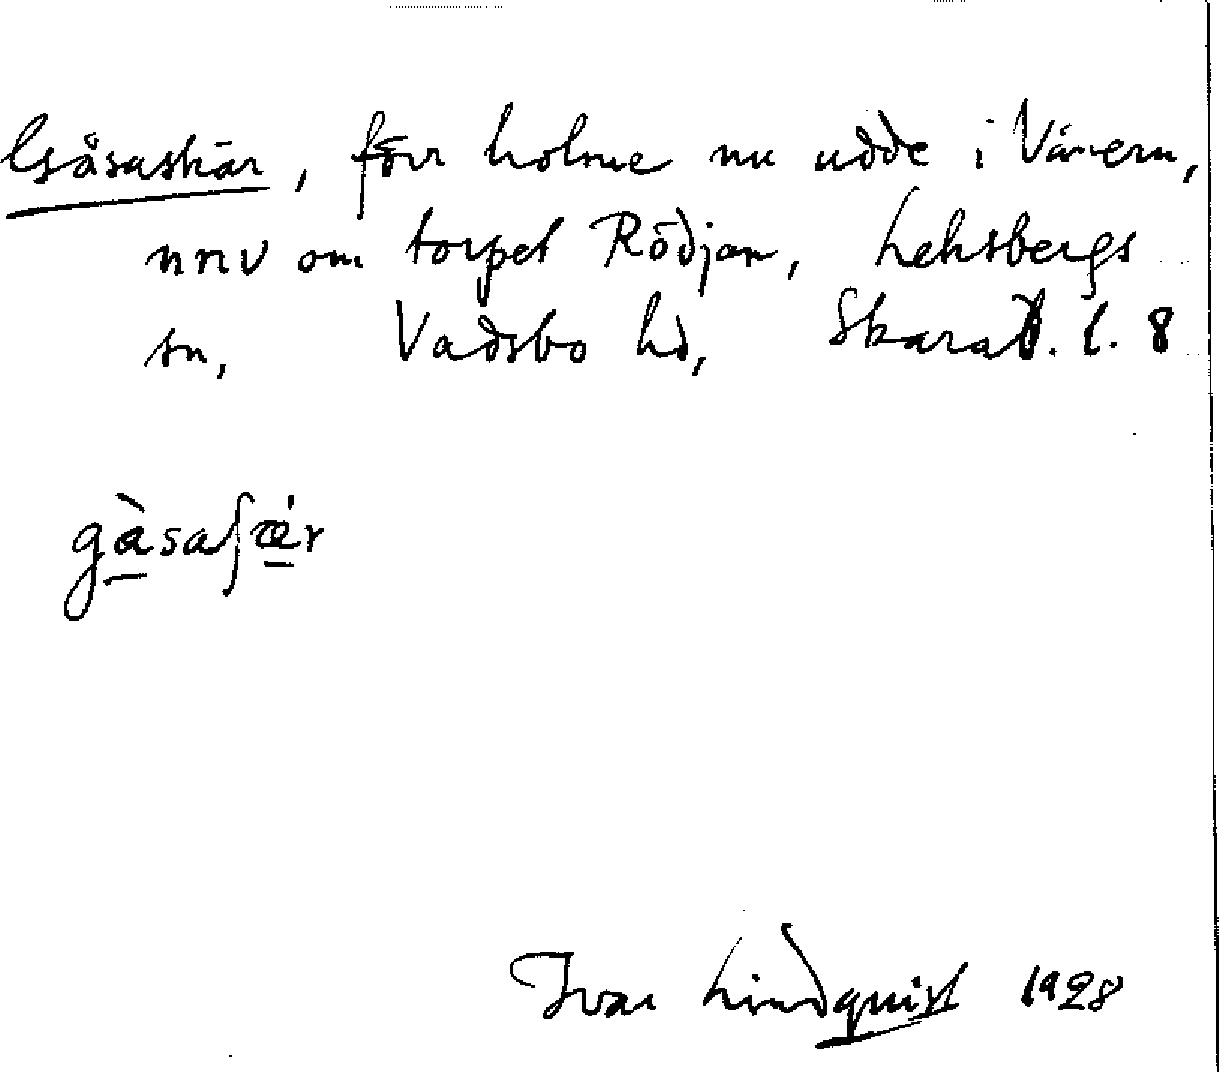 Gåsaskär, förr holme nu udde i Vänern,
nnv om torpet Rödjan, Leksbergs
sn, Vadsbo hd, Skarab. l. 8
gàsaʃǽr
Ivar Lindquist 1928